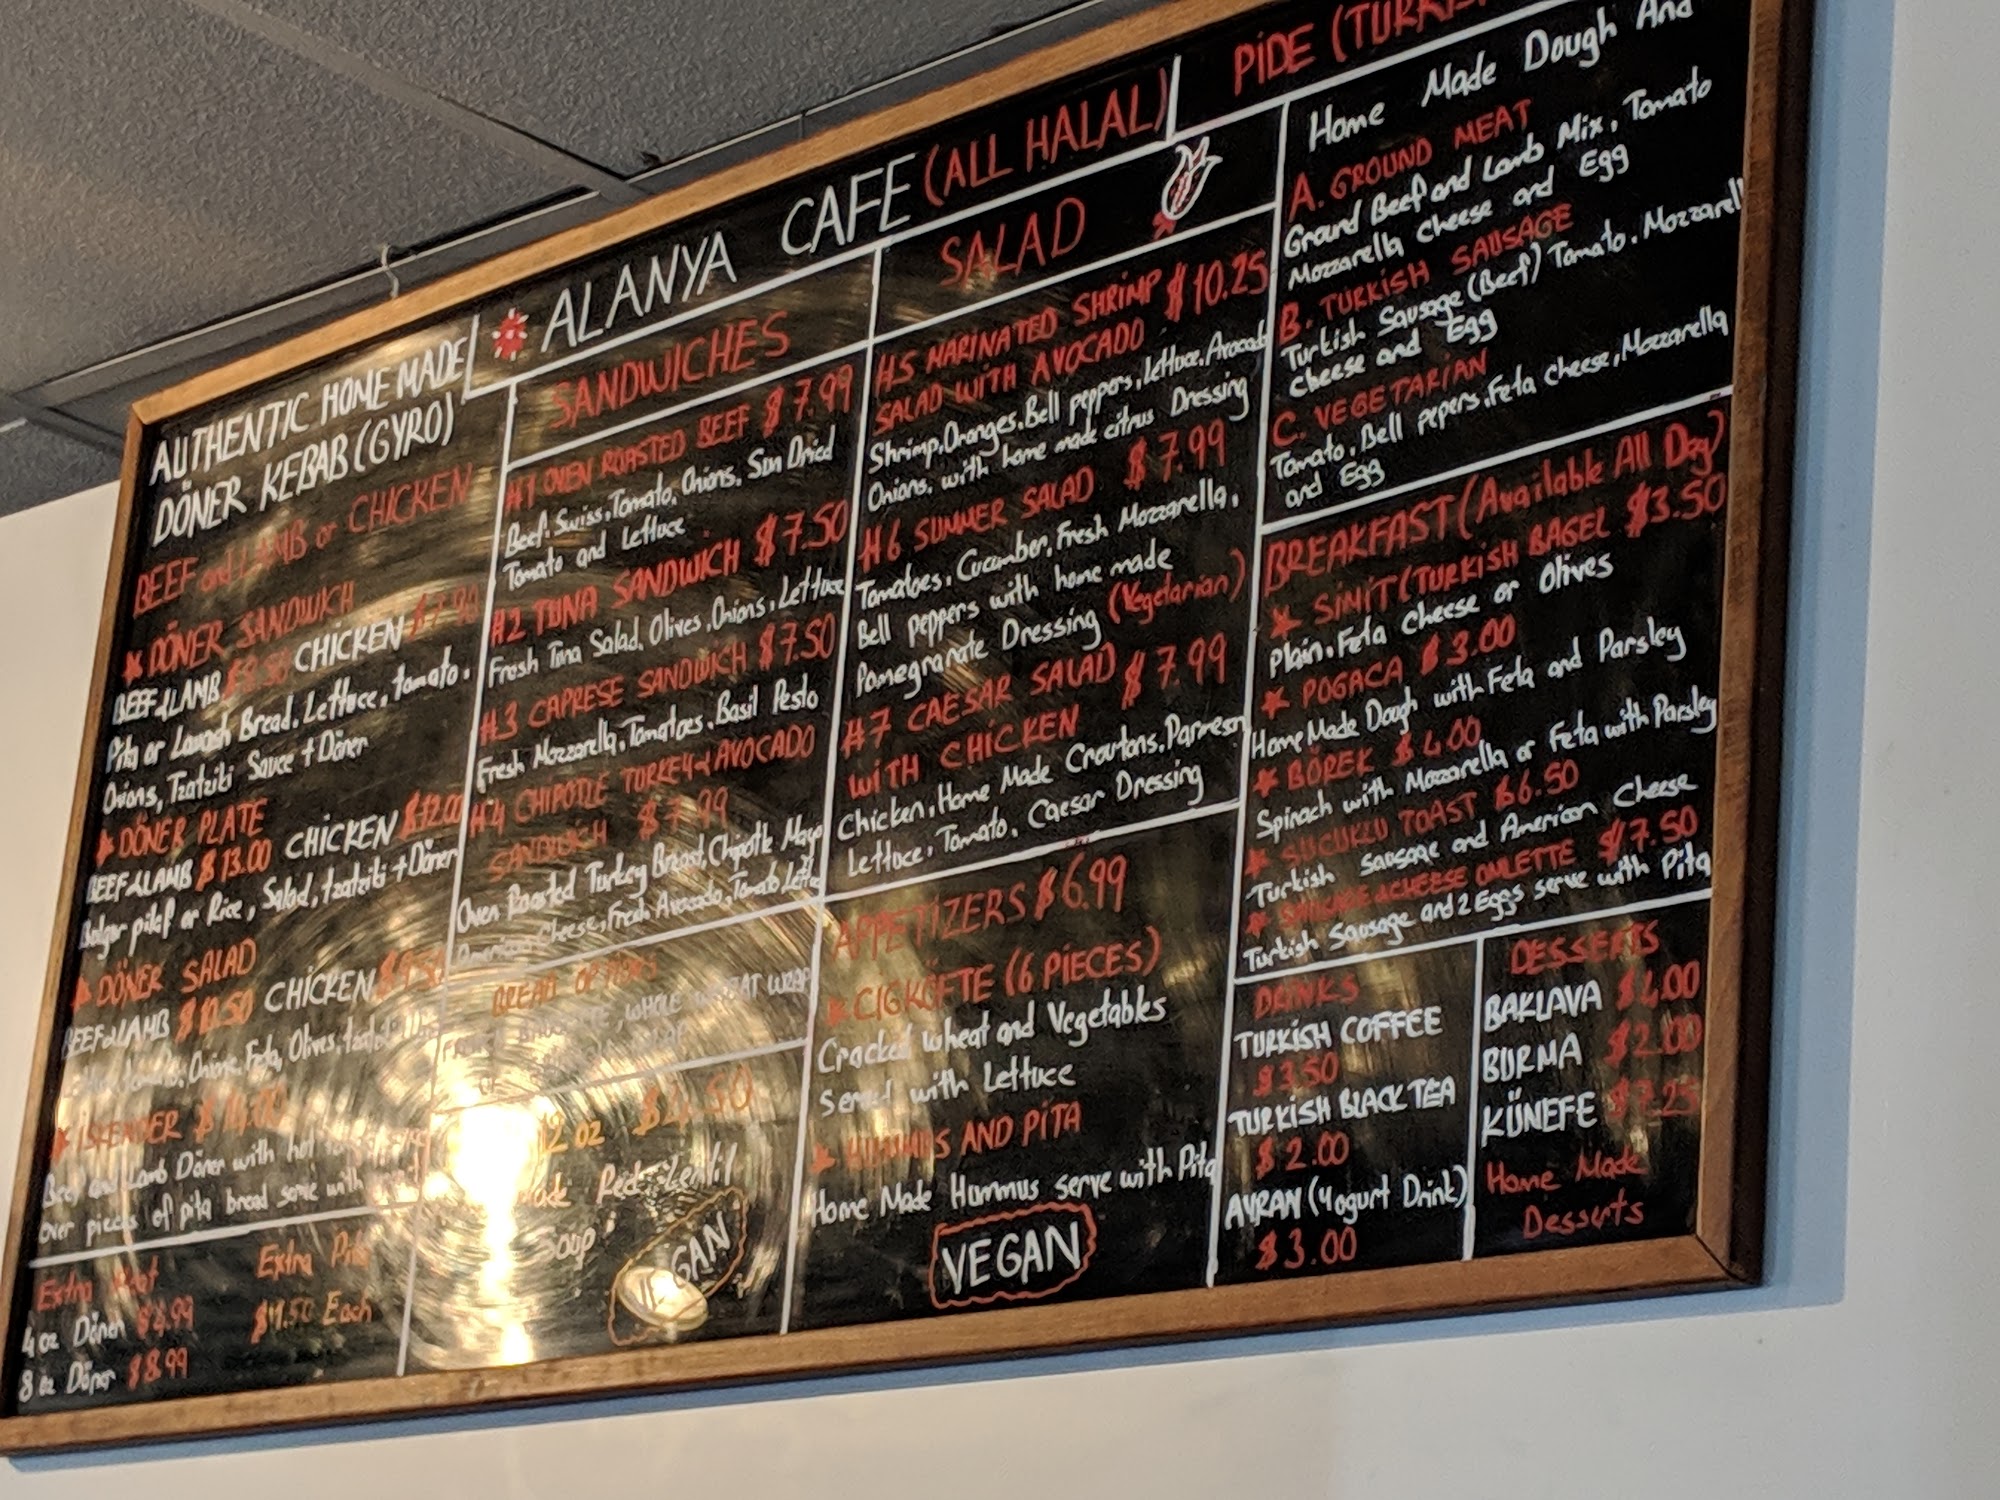 ALANYA CAFE (ALL HALAL)
AUTHENTIC HOME MADE
DÖNER KEBAB (GYRO)
BEEF and LAMB or CHICKEN
DÖNER SANDWICH
BEEF & LAMB CHICKEN
Pita or Lavash Bread, Lettuce, tomato,
Onions, Tzatziki Sauce + Döner
DÖNER PLATE
BEEF & LAMB $13.00 CHICKEN $12.00
Bulgur pilaf or Rice, Salad, tzatziki + Döner
DÖNER SALAD
BEEF & LAMB $10.50 CHICKEN $9.50
Onions, Feta, Olives,
ISKENDER
Beef and Lamb Döner with hot
over pieces of pita bread serve with
Extra Extra Pita
4 oz Döner $4.99 $1.50 Each
8 oz Döner $8.99
SANDWICHES
#1 OVEN ROASTED BEEF $7.99
Beef, Swiss, Tomato, Onions, Sun Dried
Tomato and Lettuce
#2 TUNA SANDWICH $7.50
Fresh Tuna Salad, Olives, Onions, Lettuce
#3 CAPRESE SANDWICH $7.50
Fresh Mozzarella, Tomatoes, Basil Pesto
#4 CHIPOTLE TURKEY & AVOCADO
SANDWICH $7.99
Oven Roasted Turkey Breast, Chipotle Mayo
American Cheese, Fresh Avocado, Tomato,
BREAD OPTIONS
WHOLE WHEAT WRAP
12 oz
Red Lentil
Soup
SALAD
#5 MARINATED SHRIMP $10.25
SALAD WITH AVOCADO
Shrimp, Oranges, Bell peppers, Lettuce, Avocado
Onions, with home made citrus Dressing
#6 SUMMER SALAD $7.99
Tomatoes, Cucumber, Fresh Mozzarella,
Bell peppers with home made
Pomegranate Dressing (Vegetarian)
#7 CAESAR SALAD $7.99
WITH CHICKEN
Chicken, Home Made Croutons, Parmesan
Lettuce, Tomato, Caesar Dressing
APPETIZERS $6.99
CIGKÖFTE (6 PIECES)
Cracked wheat and Vegetables
Served with Lettuce
HUMMUS AND PITA
Home Made Hummus serve with Pita
VEGAN
PIDE
Home Made Dough And
A. GROUND MEAT
Ground Beef and Lamb Mix, Tomato
Mozzarella Cheese and Egg
B. TURKISH SAUSAGE
Turkish Sausage (Beef) Tomato, Mozzarella
Cheese and Egg
C. VEGETARIAN
Tomato, Bell pepers, Feta Cheese, Mozzarella
and Egg
BREAKFAST (Available All Day)
SIMIT (TURKISH BAGEL $3.50
Plain, Feta Cheese or Olives
POGACA $3.00
Home Made Dough with Feta and Parsley
BÖREK $4.00
Spinach with Mozzarella or Feta with Parsley
SUCUKLU TOAST $6.50
Turkish Sausage and American Cheese
SAUSAGE & CHEESE OMLETTE $7.50
Turkish Sausage and 2 Eggs serve with Pita
DRINKS
TURKISH COFFEE
$3.50
TURKISH BLACK TEA
$2.00
AYRAN (Yogurt Drink)
$3.00
DESSERTS
BAKLAVA $4.00
BURMA $2.00
KÜNEFE $7.25
Home Made
Desserts